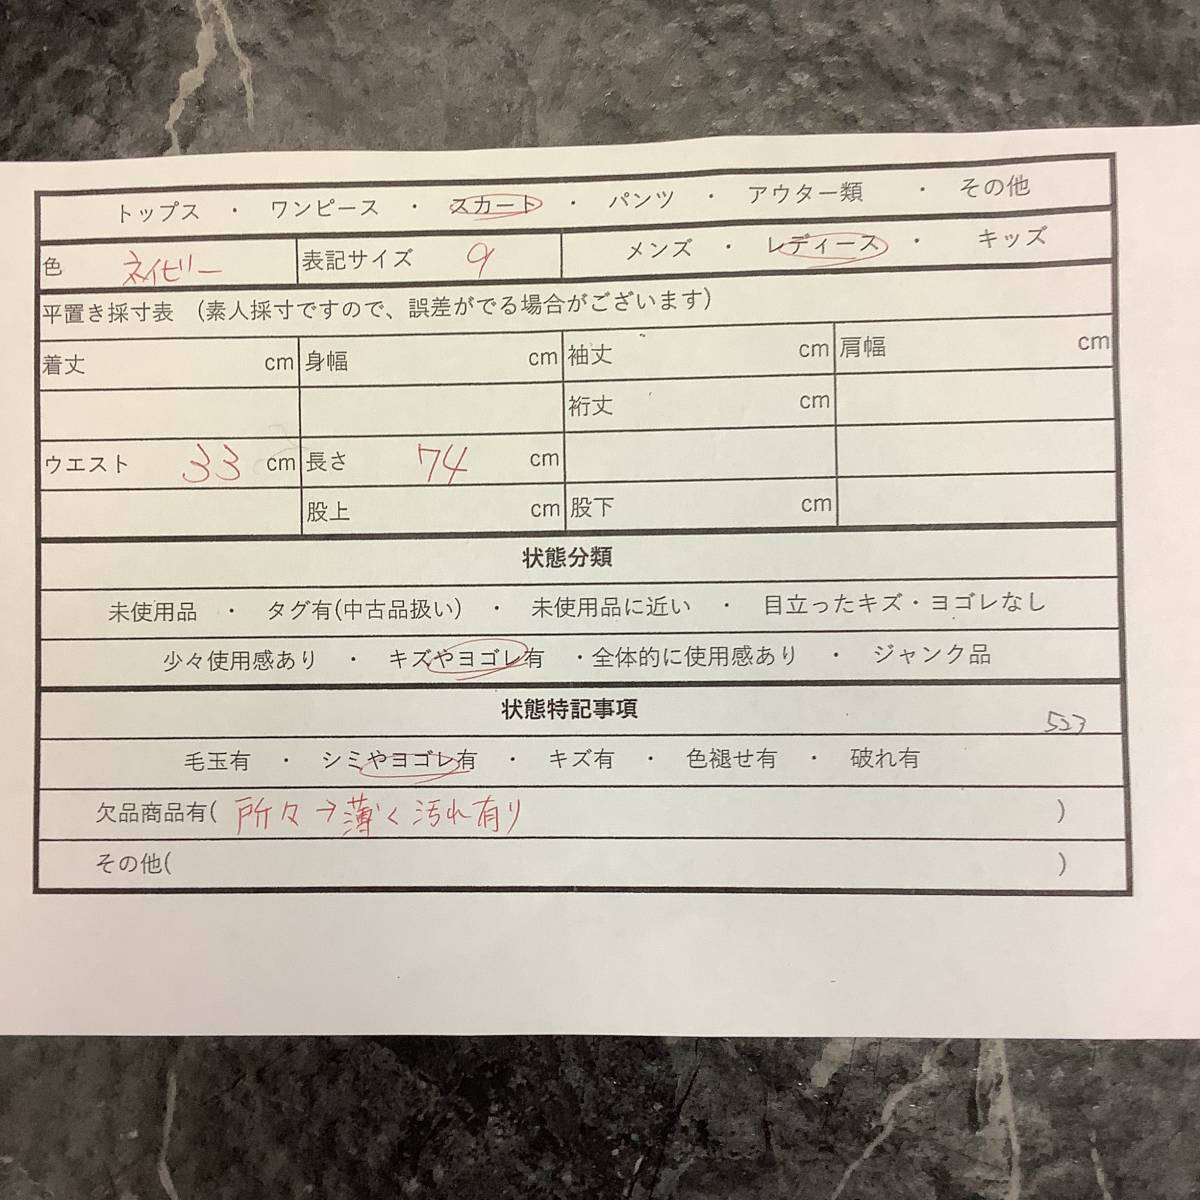 トップス ・ ワンピース ・ スカート ・ パンツ ・ アウター類 ・ その他
色 ネイビー 表記サイズ 9 メンズ ・ レディース ・ キッズ
平置き採寸表 (素人採寸ですので、誤差がでる場合がございます)
着丈 cm 身幅 cm 袖丈 cm 肩幅 cm
裄丈 cm
ウエスト 33 cm 長さ 74 cm
股上 cm 股下 cm
状態分類
未使用品 ・ タグ有(中古品扱い) ・ 未使用品に近い ・ 目立ったキズ・ヨゴレなし
少々使用感あり ・ キズやヨゴレ有 ・全体的に使用感あり ・ ジャンク品
状態特記事項
523
毛玉有 ・ シミやヨゴレ有 ・ キズ有 ・ 色褪せ有 ・ 破れ有
欠品商品有( 所々→薄く汚れ有り )
その他( )